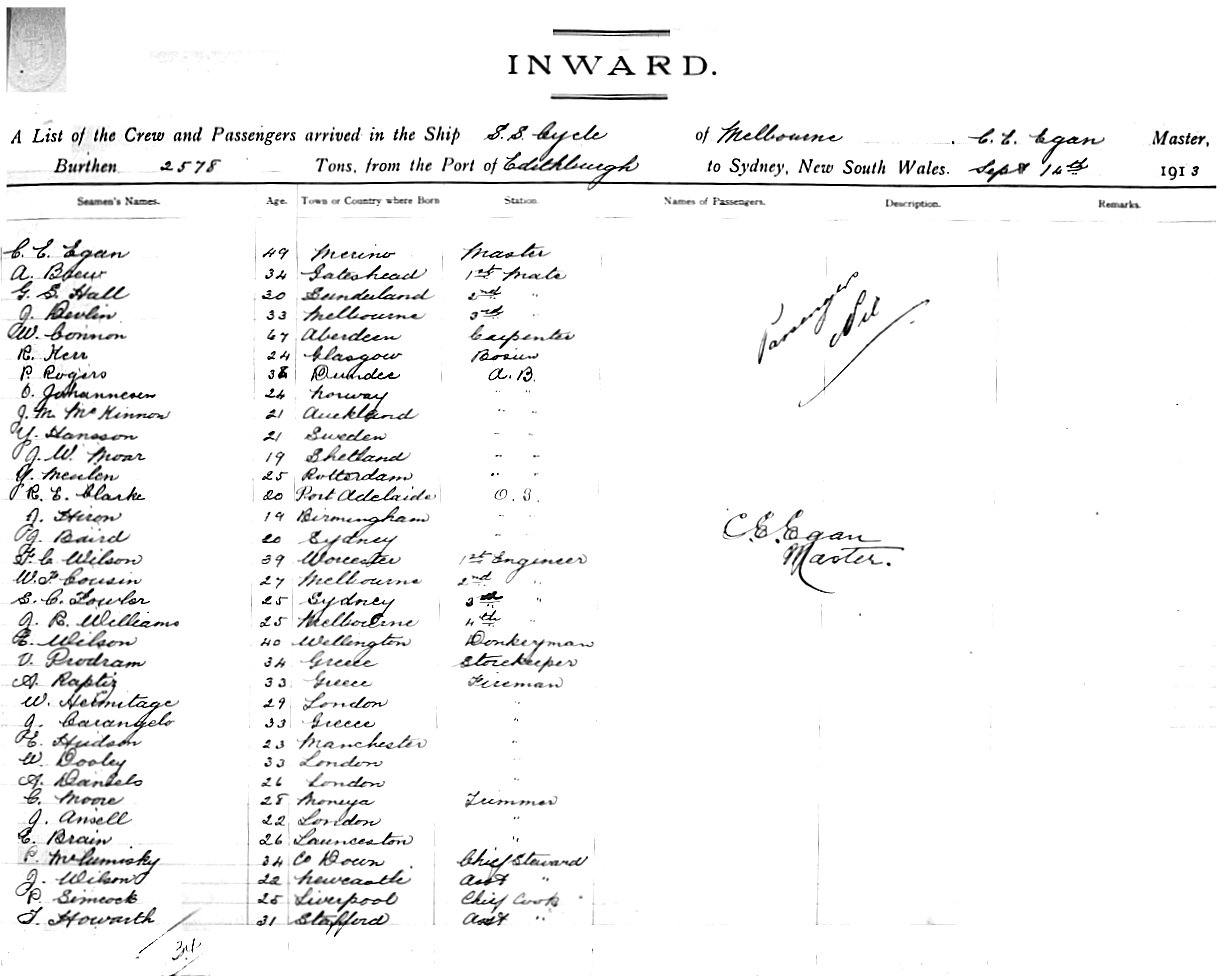 INWARD.
A List of the Crew and Passengers arrived in the Ship S.S. Cycle of Melbourne C. E. Egan Master,
Burthen 2578 Tons, from the Port of Edithburgh to Sydney, New South Wales. Sept 14th 1913
Seamen's Names. Age. Town or Country where Born Station. Names of Passengers. Description. Remarks.
C. E. Egan 49 Merino Master
A. Brew 34 Gateshead 1st Mate
G. S. Hall 30 Sunderland 2nd "
J. Devlin 33 Melbourne 3rd "
W. Connon 67 Aberdeen Carpenter
R. Kerr 24 Glasgow Bosun
P. Rogers 38 Dundee A.B.
O. Johannesen 24 Norway " "
J. M. McKinnon 21 Auckland " "
Y. Hansson 21 Sweden " "
J. W. Moar 19 Shetland " "
Y. Meulen 25 Rotterdam " "
R. E. Clarke 20 Port Adelaide O.S.
J. Hiron 19 Birmingham " "
J. Baird 20 Sydney " "
F. C. Wilson 39 Worcester 1st Engineer
W. F. Cousin 27 Melbourne 2nd "
S. C. Fowler 25 Sydney 3rd "
J. R. Williams 25 Melbourne 4th "
E. Wilson 40 Wellington Donkeyman
V. Prodram 34 Greece Storekeeper
A. Raptis 33 Greece Fireman
W. Hermitage 29 London "
J. Carangelo 33 Greece "
E. Hudson 23 Manchester "
W. Dooley 33 London "
A. Daniels 26 London "
C. Moore 28 Moneya Trimmer
J. Ansell 22 London "
E. Brain 26 Launceston "
P. McCumisky 34 Co Down Chief Steward
J. Wilson 22 Newcastle Asst "
P. Simcock 25 Liverpool Chief Cook
T. Howarth 31 Stafford Asst "
34
Passengers
Nil
C. E. Egan
Master.